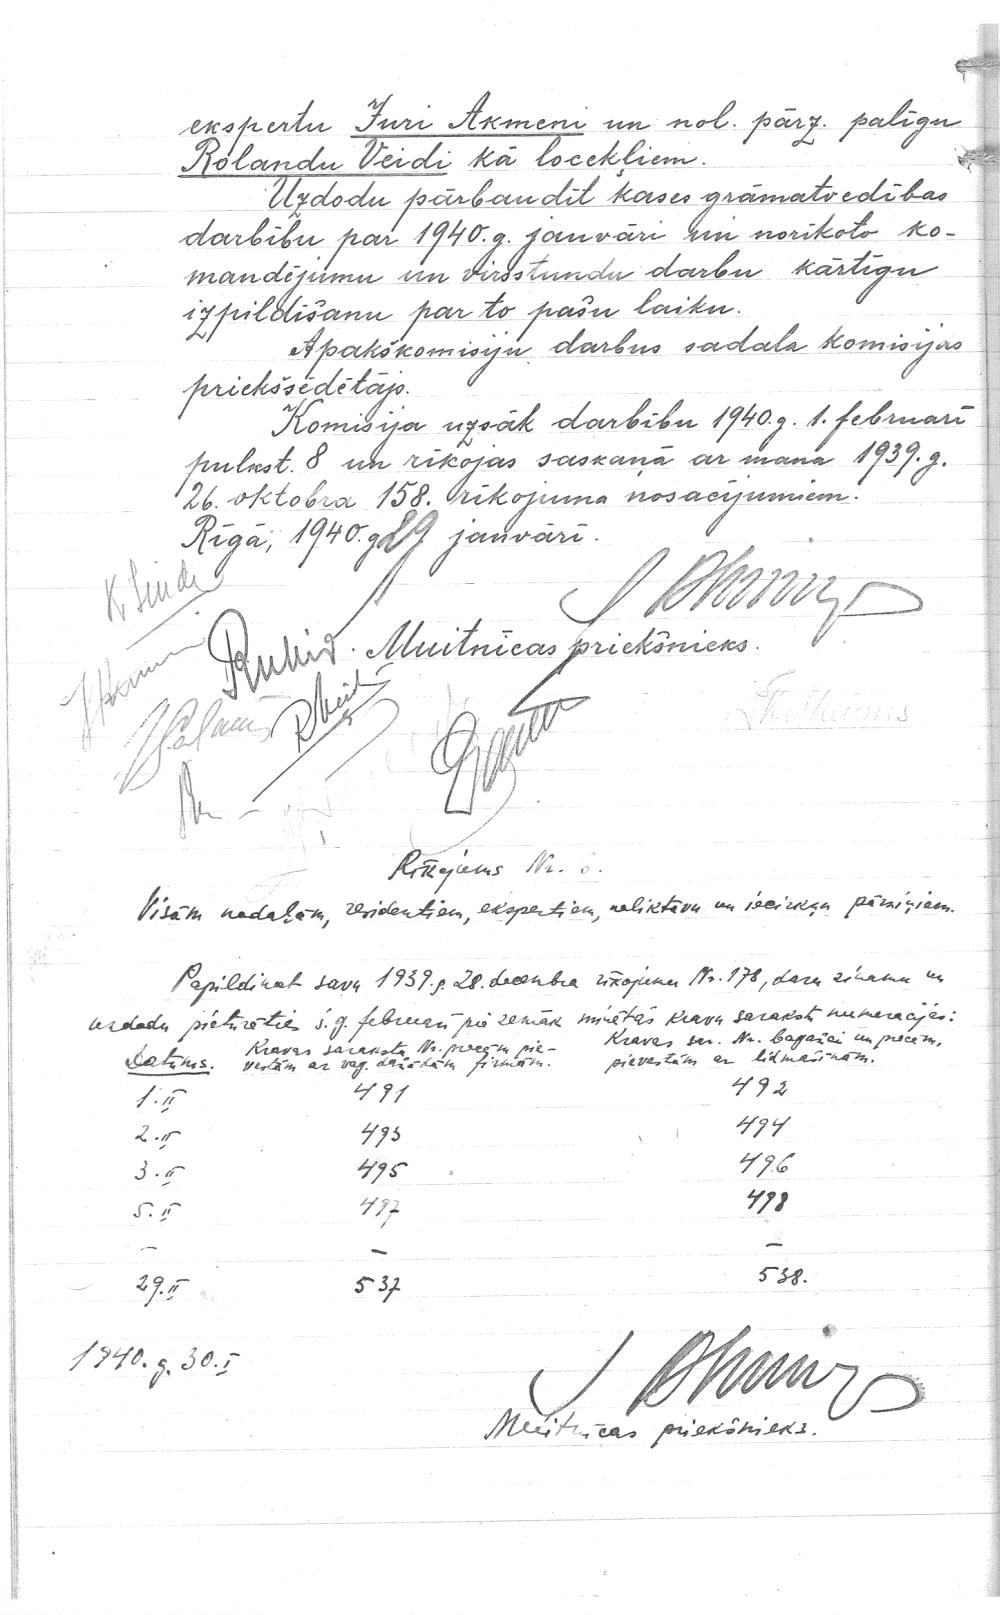 ekspertu Juri Akmeni un nol. pārz. palīgu
Rolandu Veidi kā locekļiem.
Uzdodu pārbaudīt kases grāmatvedības
darbību par 1940.g. janvāri un norīkoto ko-
mandējumu un virsstundu darbu kārtīgu
izpildīšanu par to pašu laiku.
Apakškomisiju darbus sadala komisijas
priekšsēdētājs.
Komisija uzsāk darbību 1940.g. 1. februārī
pulkst. 8 un rīkojas saskaņā ar mana 1939.g.
26. oktobra 158. rīkojuma nosacījumiem.
Rīgā, 1940.g 29 janvārī.
Muitnīcas priekšnieks.
Rīkojums Nr.
Visām nodaļām, rezidentiem, ekspertiem, noliktavu un iecirkņu pārziņiem.
Papildinot savu 1939.g. 28. decembra rīkojumu Nr. 178, daru zināmu un
uzdodu pieturēties š.g. februārī pie zemāk minētās kravu sarakstu numerācijas:
Datums.
Kravas saraksta Nr. precēm pie-
vestām ar vag. dažādām firmām.
Kravas sar. Nr. bagāžai un precēm,
pievestām ar lidmašīnām.
1.II 491 492
2.II 493 494
3.II 495 496
5.II 497 498
– – –
29.II 537 538.
1940.g. 30.I
Muitnīcas priekšnieks.